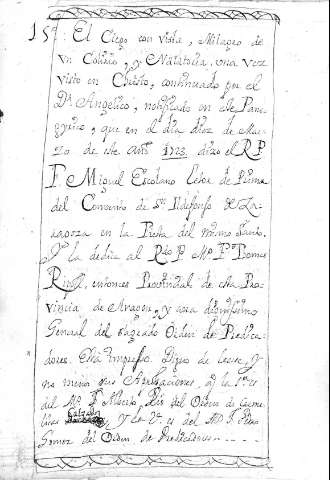 15ª: El Ciego con vista, Milagro de
un Colirio, y Natatoria, una vez
visto en Christo, continuado por el
Dʳ Angelico, notificado en este Pane-
gyrico, que en el dia diez de Mar-
zo de este Año 1723. dixo el R. P.
F. Miguel Escolano Lector de Prima
del Convento de Sⁿ Ildefonso de Za-
ragoza en la Fiesta del mismo Santo.
Y la dedica al Rᵐᵒ P. Mº Fº Thomas
Ripoll, entonces Provincial de esta Pro-
vincia de Aragon, y aora dignissimo
General del Sagrado Orden de Predica-
dores. Está impresso. Digno de leerse, y
no menos sus Aprobaciones, q̃ la 1ª es
del Mº F. del Orden de Carme-
litas Calzados, y la 2ª es del Mº F. Pedro
Gomez del Orden de Predicadores